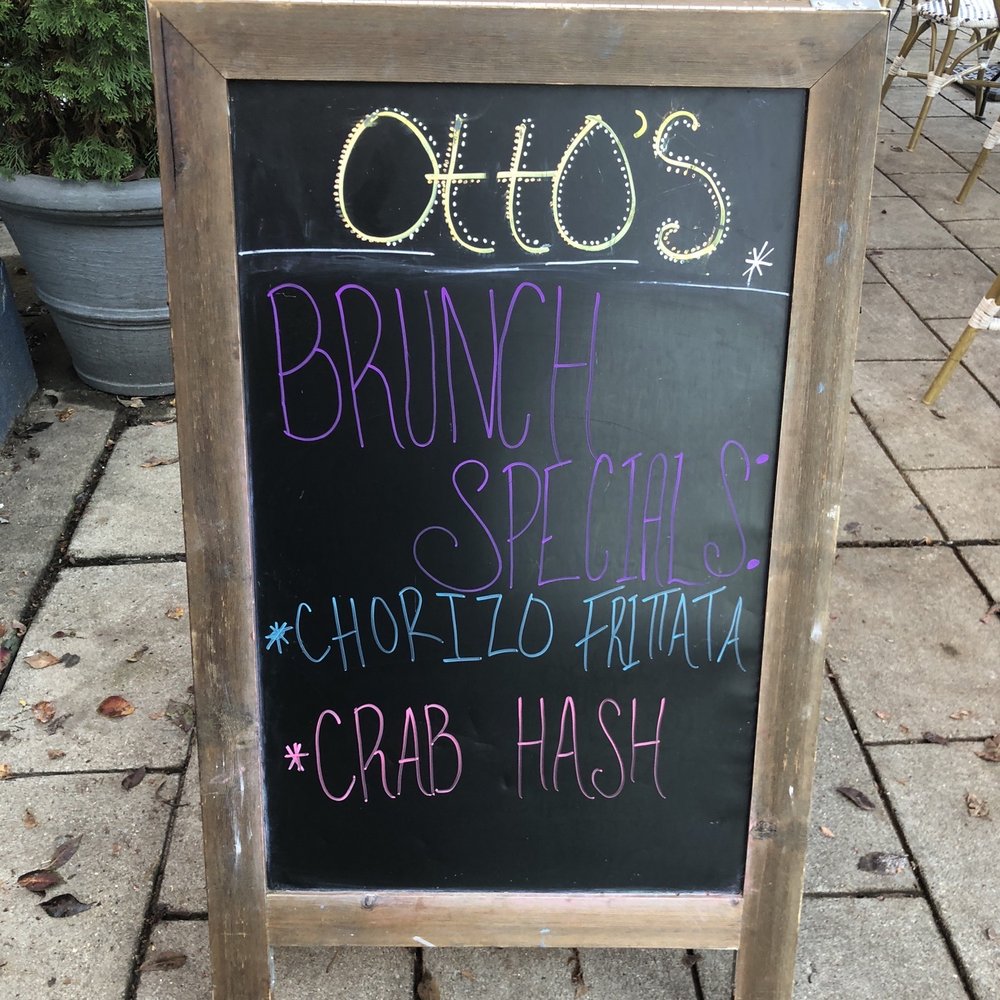 Otto's
BRUNCH
SPECIALS:
*CHORIZO FRITTATA
*CRAB HASH